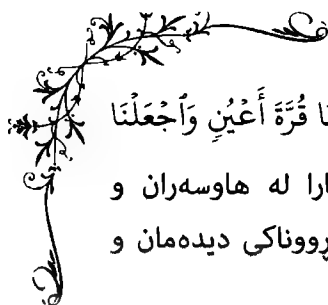 قُرَّةَ أَعْيُنٍ وَٱجْعَلْنَا
له هاوسەران و
ڕووناکی دیدەمان و